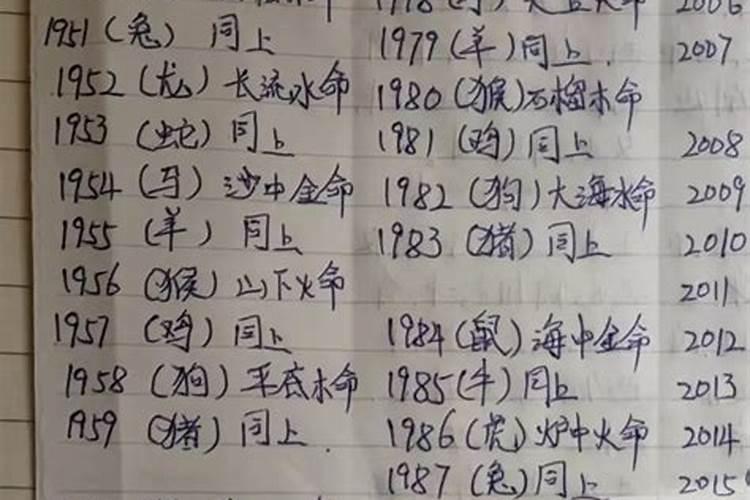 1978 2006
1951 (兔) 同上 1979 (羊) 同上. 2007
1952 (龙) 长流水命 1980 (猴) 石榴木命
1953 (蛇) 同上 1981 (鸡) 同上 2008
1954 (马) 沙中金命 1982 (狗) 大海水命 2009
1955 (羊) 同上 1983 (猪) 同上 2010
1956 (猴) 山下火命 2011
1957 (鸡) 同上 1984 (鼠) 海中金命 2012
1958 (狗) 平底木命 1985 (牛) 同上 2013
1959 (猪) 同上. 1986 (虎) 炉中火命 2014
1987 (兔) 同上 2015